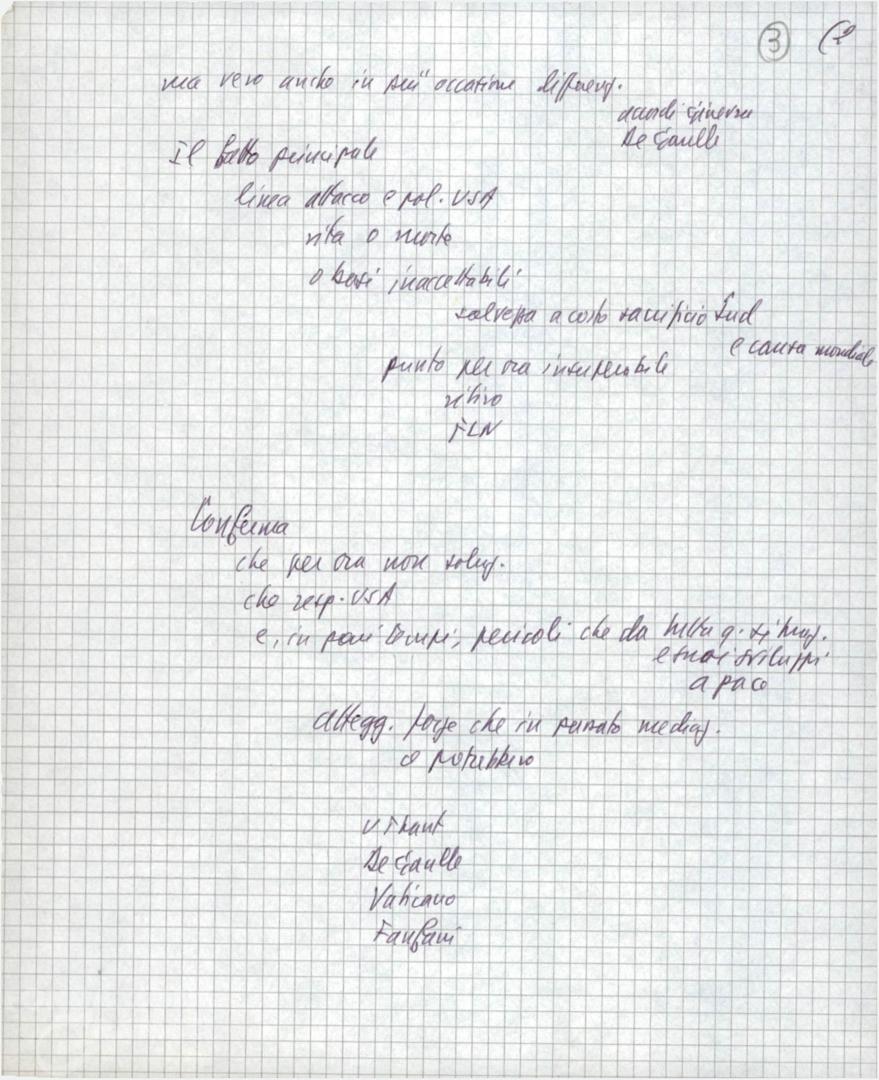 3 (2
ma vero anche in più occasione differenz.
accordi Ginevra
De Gaulle
Il fatto principale
linea attacco e pol. USA
vita o morte
o basi inaccettabili
salvezza a costo sacrificio Sud
e causa mondiale
punto per ora insuperabile
ritiro
FLN
Conferma
che per ora non soluz.
che resp. USA
e, in pari tempi, pericoli che da tutta q. situaz.
e suoi sviluppi
a pace
attegg. forze che in passato mediaz.
o potrebbero
U Thant
De Gaulle
Vaticano
Fanfani